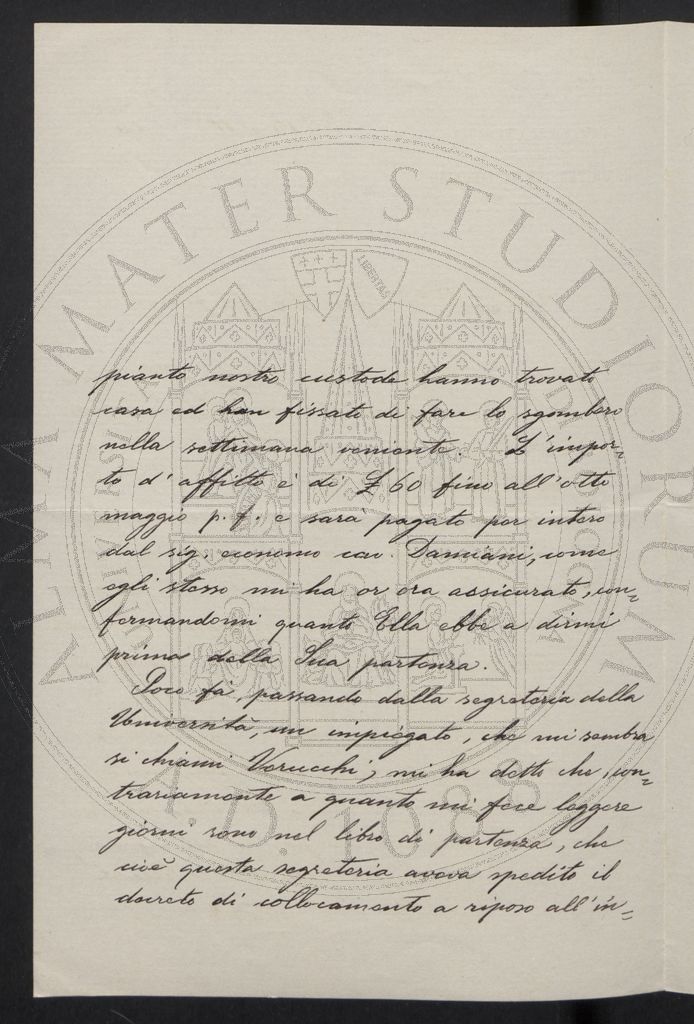 pianto nostro custode hanno trovato
casa ed han fissato di fare lo sgombero
nella settimana veniente. L'impor=
to d'affitto è di £ 60 fino all'otto
maggio p. f. e sarà pagato per intero
dal sig. economo cav. Damiani, come
egli stesso mi ha or ora assicurato, con=
fermandomi quanto Ella ebbe a dirmi
prima della Sua partenza.
Poco fà, passando dalla segreteria della
Università, un impiegato, che mi sembra
si chiami Verucchi, mi ha detto che, con=
trariamente a quanto mi fece leggere
giorni sono nel libro di partenza, che
cioè questa segreteria aveva spedito il
decreto di collocamento a riposo all'in=
ALMA MATER STUDIORUM
A.D. 1088
LIBERTAS